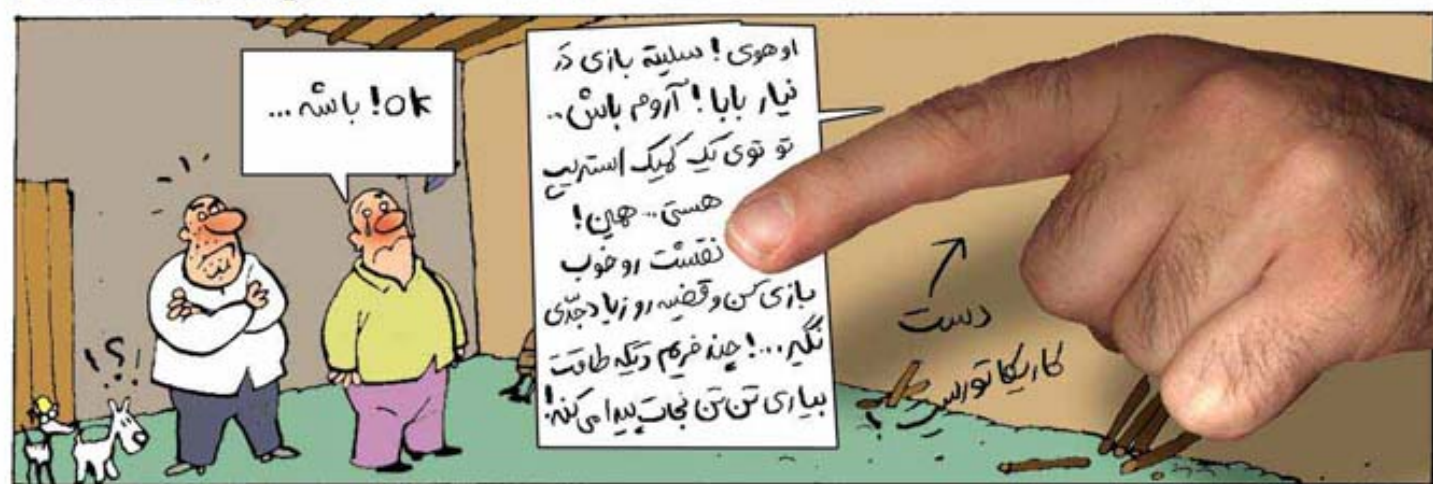 اوهوی! سلیته بازی دَر
نیار بابا! آروم باش..
تو توی یک کمیک استریپ
هستی.. همین!
نقشت رو خوب
بازی کن و قضیه رو زیاد جدّی
نگیر...! چند فریم دیگه طاقت
بیاری تن تن نجات پیدا می‌کنه!
ok! باشه...
!؟!
دست
کاریکاتوریست!